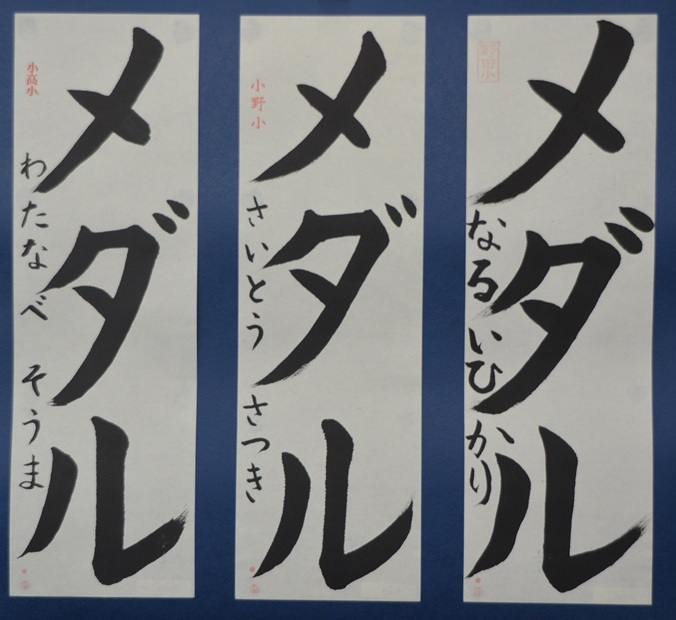 メダル
小高小
わたなべ そうま
メダル
小野小
さいとう さつき
メダル
野田小
なるい ひかり